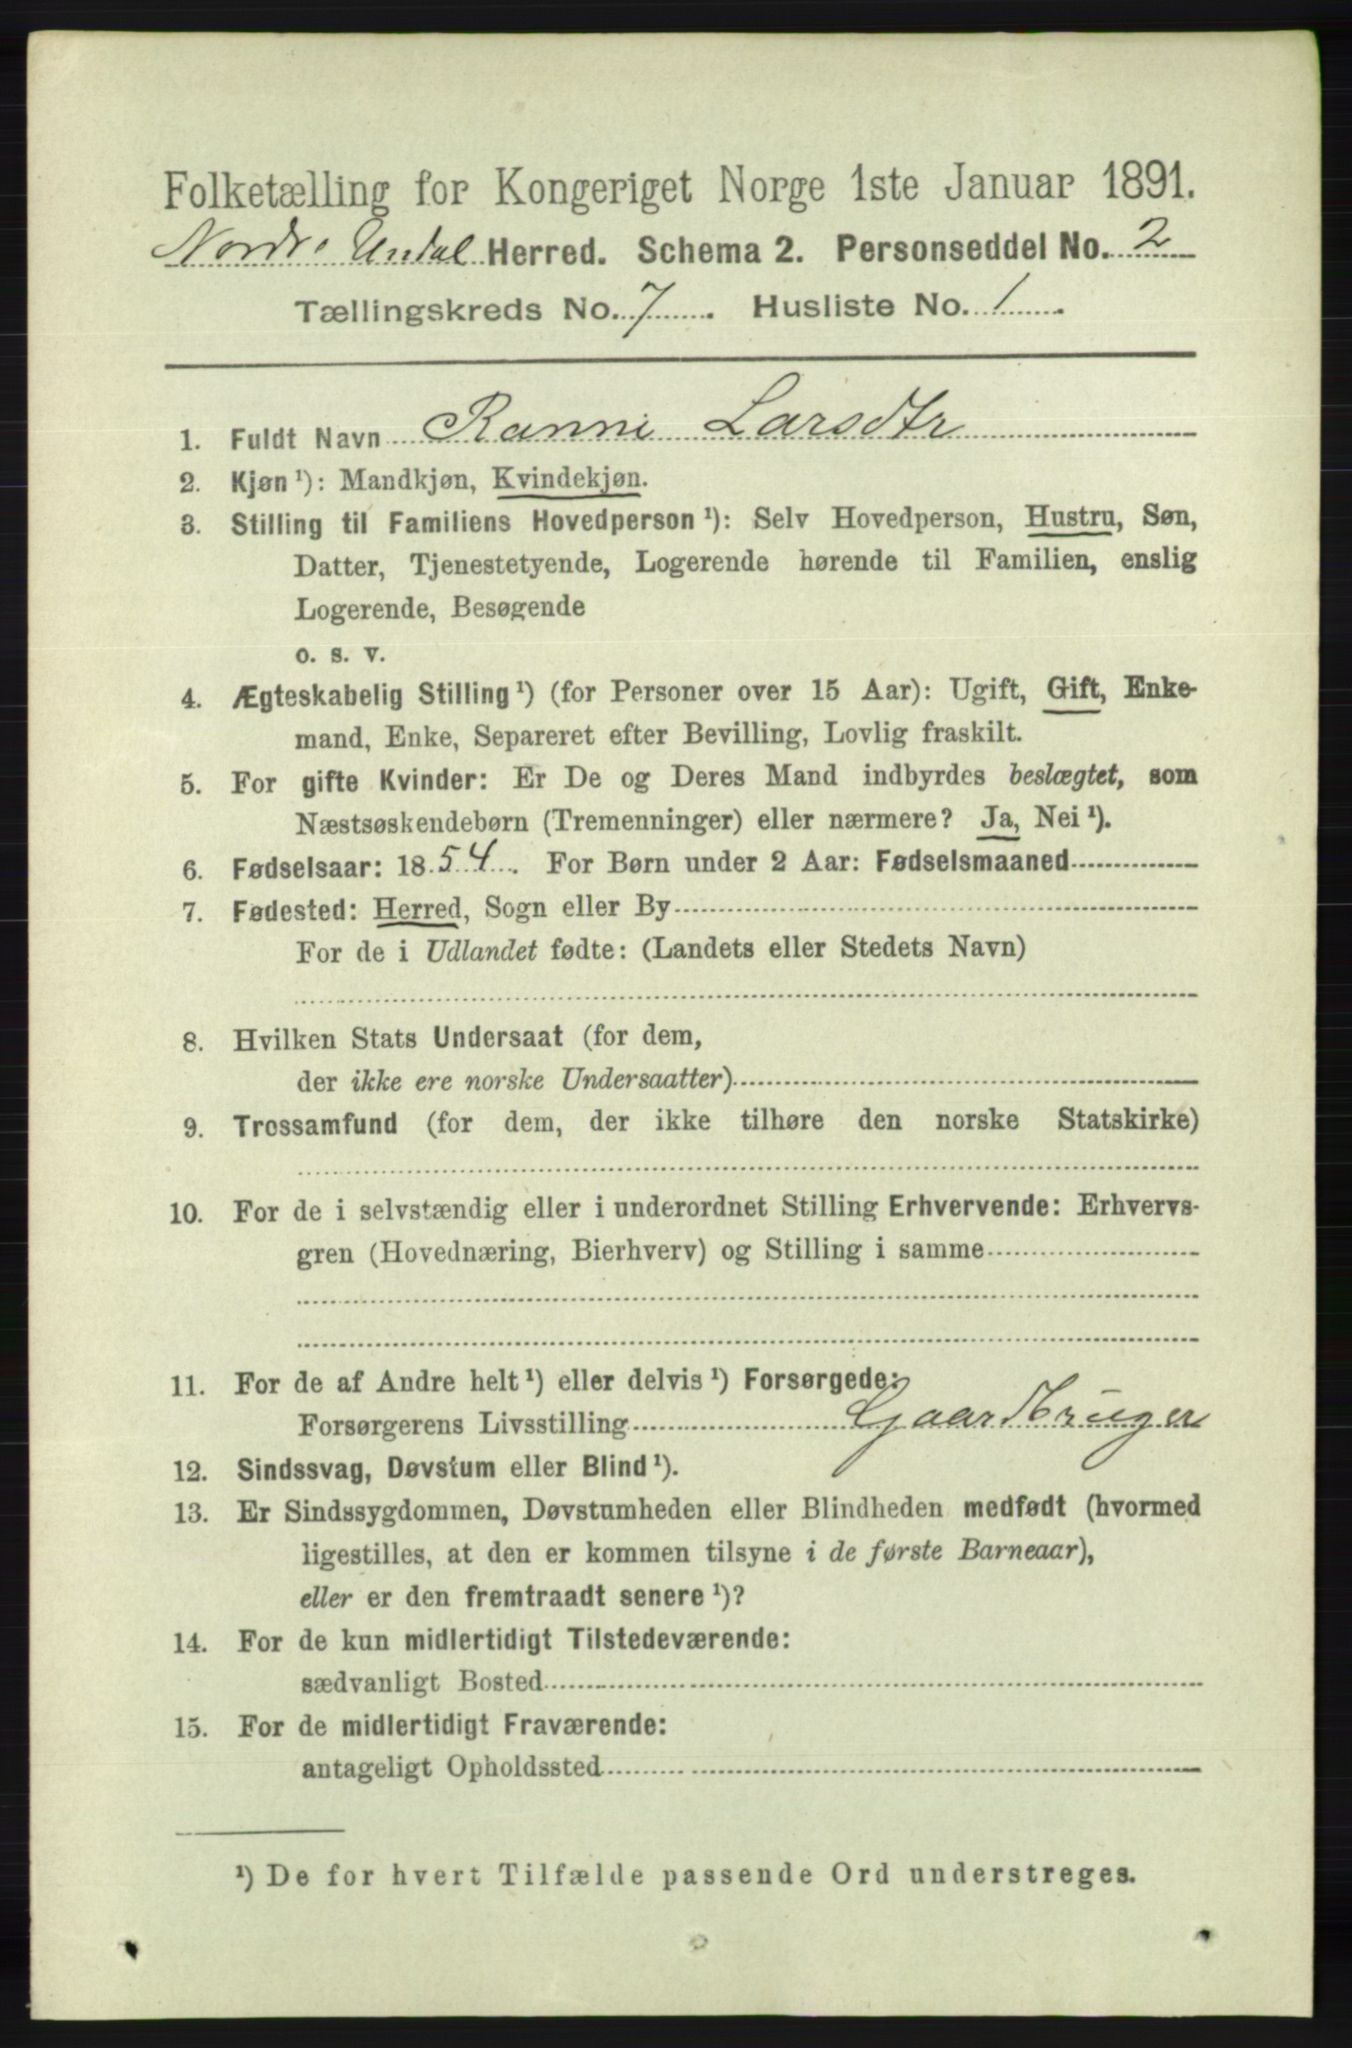 Folketælling for Kongeriget Norge 1ste Januar 1891.
Nordre Undal Herred. Schema 2. Personseddel No. 2
Tællingskreds No. 7. Husliste No. 1.
1. Fuldt Navn Ranni Larsdtr
2. Kjøn ¹): Mandkjøn, Kvindekjøn.
3. Stilling til Familiens Hovedperson ¹): Selv Hovedperson, Hustru, Søn,
Datter, Tjenestetyende, Logerende hørende til Familien, enslig
Logerende, Besøgende
o. s. v.
4. Ægteskabelig Stilling ¹) (for Personer over 15 Aar): Ugift, Gift, Enke-
mand, Enke, Separeret efter Bevilling, Lovlig fraskilt.
5. For gifte Kvinder: Er De og Deres Mand indbyrdes beslægtet, som
Næstsøskendebørn (Tremenninger) eller nærmere? Ja, Nei ¹).
6. Fødselsaar: 1854. For Børn under 2 Aar: Fødselsmaaned
7. Fødested: Herred, Sogn eller By
For de i Udlandet fødte: (Landets eller Stedets Navn)
8. Hvilken Stats Undersaat (for dem,
der ikke ere norske Undersaatter)
9. Trossamfund (for dem, der ikke tilhøre den norske Statskirke)
10. For de i selvstændig eller i underordnet Stilling Erhvervende: Erhvervs-
gren (Hovednæring, Bierhverv) og Stilling i samme
11. For de af Andre helt ¹) eller delvis ¹) Forsørgede:
Forsørgerens Livsstilling Gaardbruger
12. Sindssvag, Døvstum eller Blind ¹).
13. Er Sindssygdommen, Døvstumheden eller Blindheden medfødt (hvormed
ligestilles, at den er kommen tilsyne i de første Barneaar),
eller er den fremtraadt senere ¹)?
14. For de kun midlertidigt Tilstedeværende:
sædvanligt Bosted
15. For de midlertidigt Fraværende:
antageligt Opholdssted
¹) De for hvert Tilfælde passende Ord understreges.